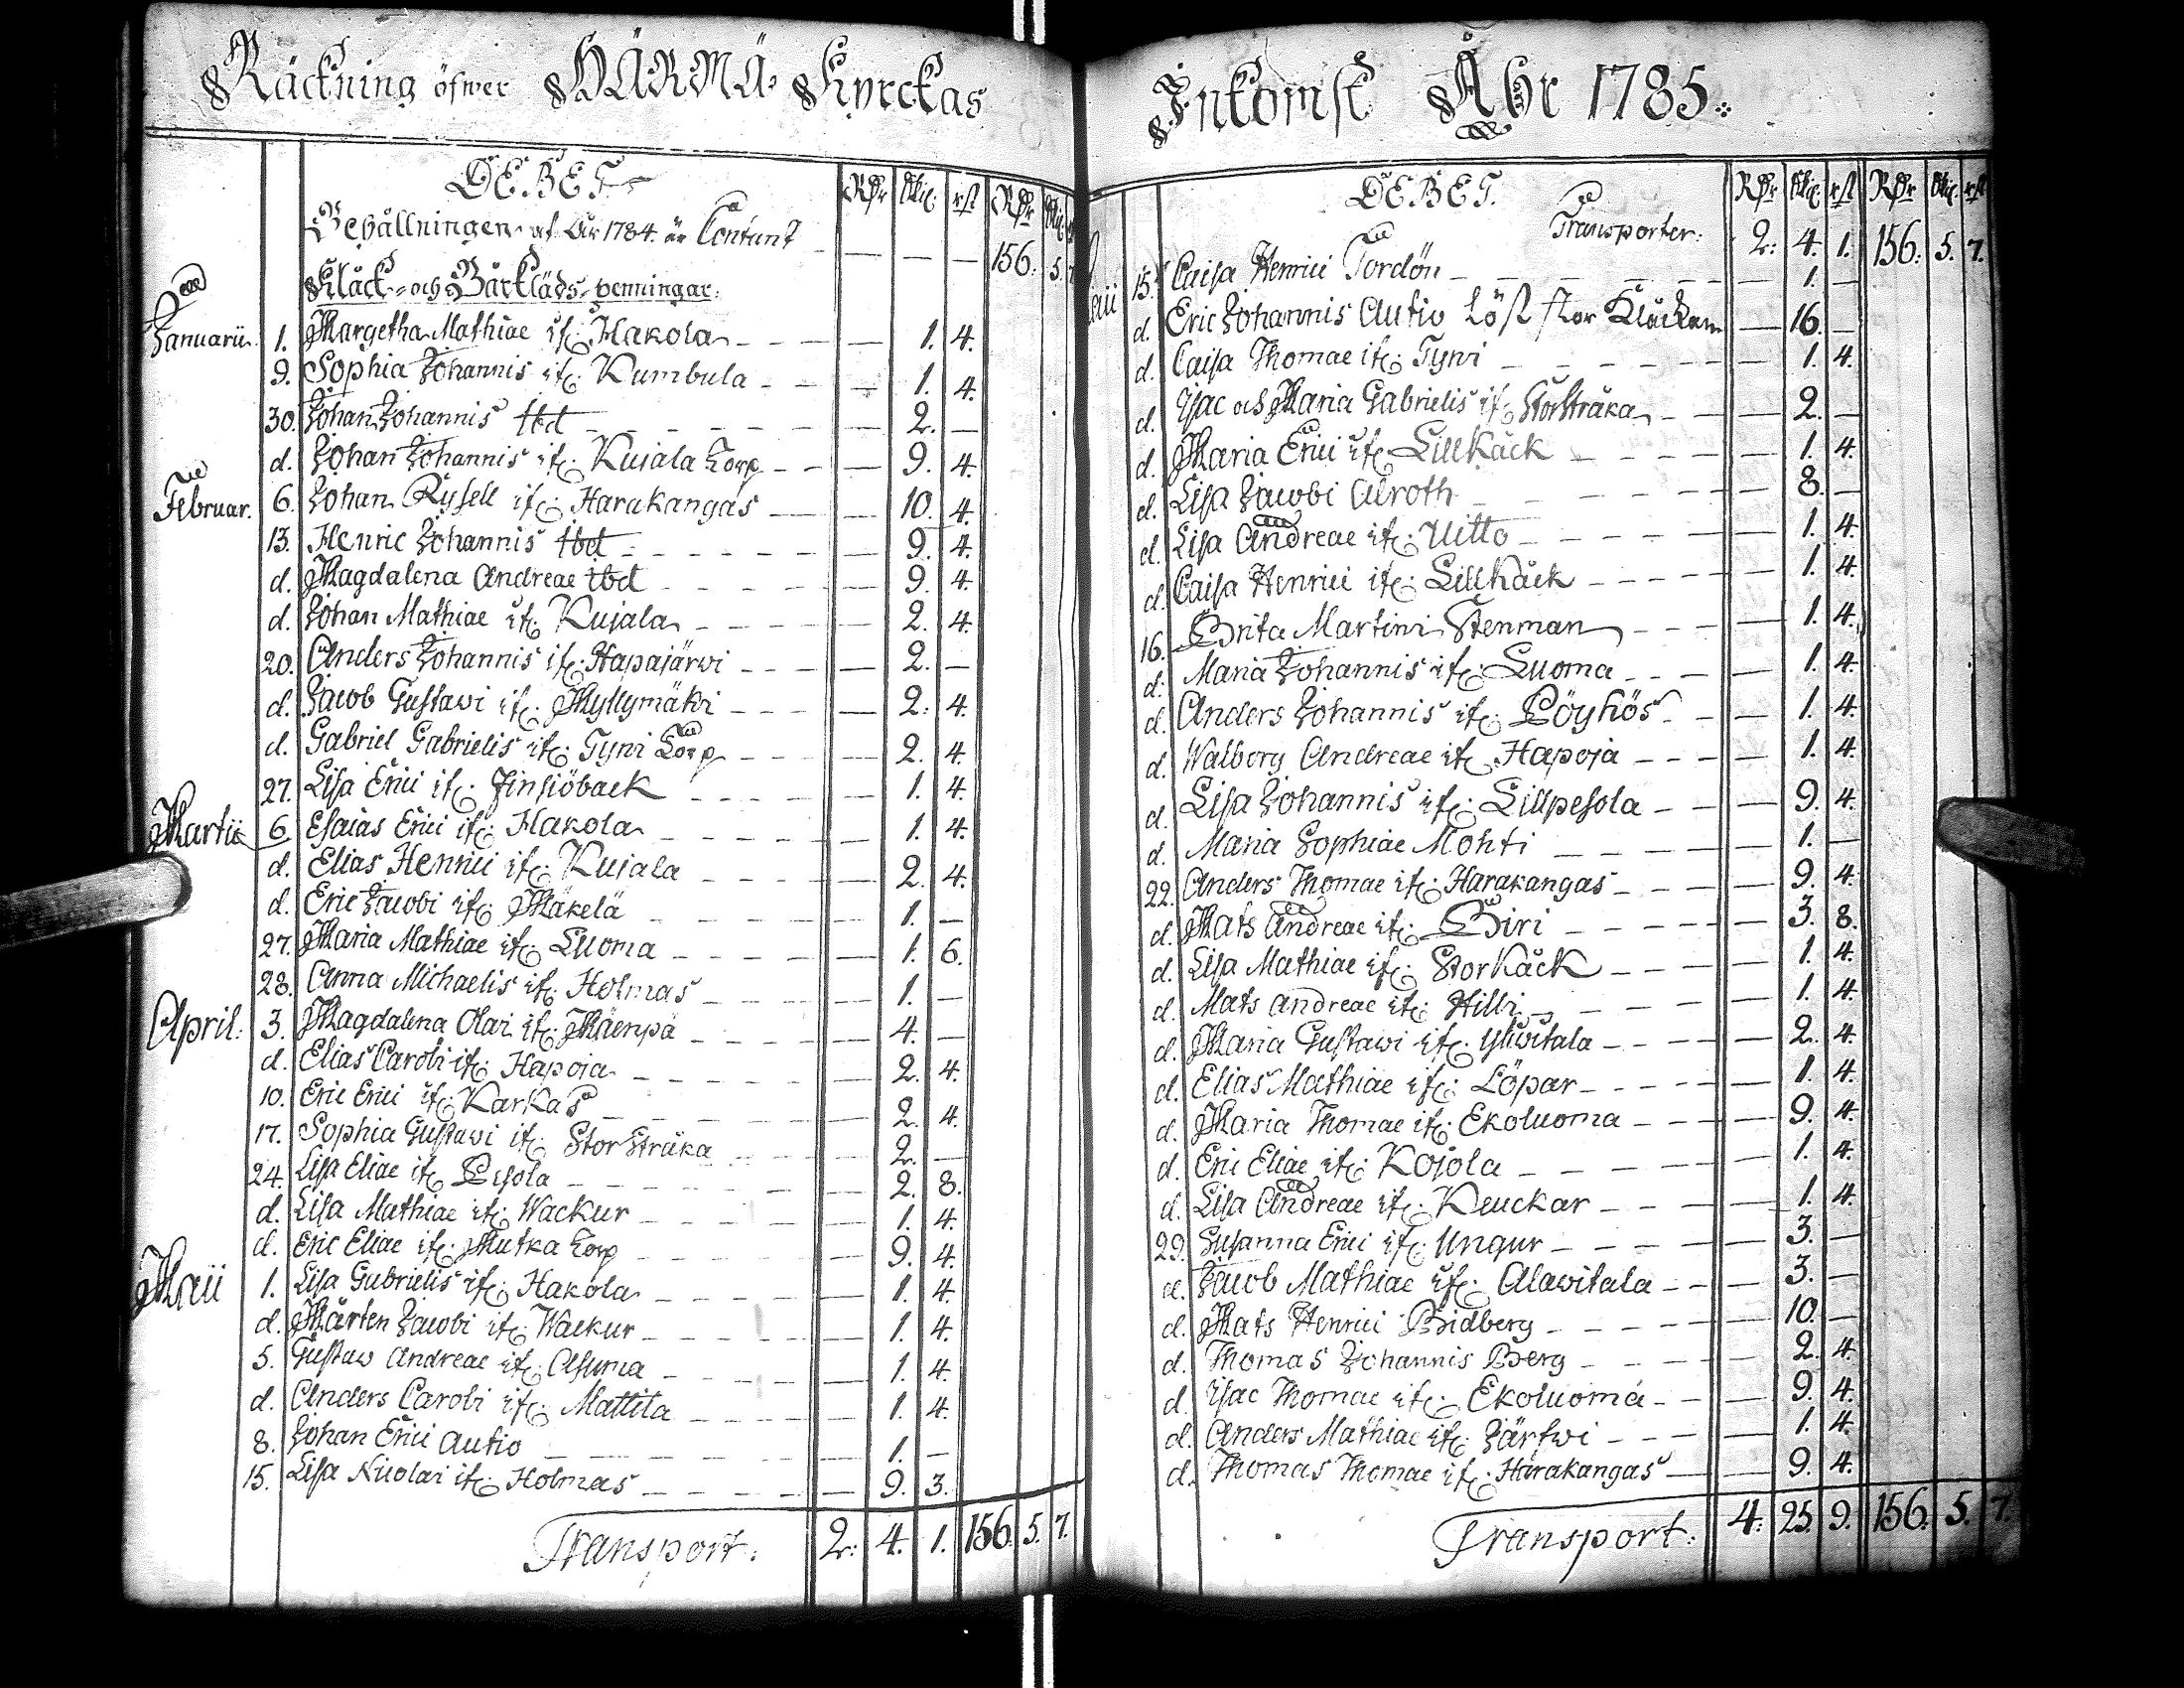 Räckning öfwer HÄRMÄ Kyrckas
DEBET Rdr skil. rst Rdr skil.
Behållningen af År 1784. är Contant — — — 156. 5. 7
Kläck- och Bårkläds-penningar:
Januarii. 1. Margetha Mathiae if. Hakola — 1. 4.
9. Sophia Johannis if. Kumbula — 1. 4.
30. Johan Johannis ibd — 2. —
d. Johan Johannis if. Kujala Torp — 9. 4.
Februar. 6. Johan Rysell if. Harakangas — 10. 4.
13. Henric Johannis ibd — 9. 4.
d. Magdalena Andreae ibd — 9. 4.
d. Johan Mathiae if. Kujala — 2. 4.
20. Anders Johannis if. Hapajärwi — 2. —
d. Jacob Gustawi if. Myllymäki — 2. 4.
d. Gabriel Gabrielis if. Tyni Torp — 2. 4.
27. Lisa Erici if. Finsiöback — 1. 4.
Martii 6. Esaias Erici if. Hakola — 1. 4.
d. Elias Henrici if. Kujala — 2. 4.
d. Eric Jacobi if. Mäkelä — 1. —
27. Maria Mathiae if. Luoma — 1. 6.
28. Anna Michaelis if. Holmas — 1. —
April. 3. Magdalena Olai if. Mäenpä — 4. —
d. Elias Caroli if. Hapoja — 2. 4.
10. Eric Erici if. Karkas — 2. 4.
17. Sophia Gustawi if. Stor Sträka — 2. —
24. Lisa Eliae if. Pesola — 2. 8.
d. Lisa Mathiae if. Wackur — 1. 4.
d. Eric Eliae if. Mutka Torp — 9. 4.
Maii 1. Lisa Gabrielis if. Hakola — 1. 4.
d. Mårten Jacobi if. Wackur — 1. 4.
5. Gustaw Andreae if. Asuma — 1. 4.
d. Anders Caroli if. Mattila — 1. 4.
8. Johan Erici Autio — 1. —
15. Lisa Nicolai if. Holmas — 9. 3.
Transport: 2: 4. 1. 156. 5. 7.
Inkomst Åhr 1785.
DEBET. Rdr skil. rst Rdr skil. rst
Transporter: 2: 4. 1. 156. 5. 7.
Maii 15. Caisa Henrici Tordön — 1. —
d. Eric Johannis Autio löst stor Klåckan — 16. —
d. Caisa Thomae if. Tyni — 1. 4.
d. Isac och Maria Gabrielis if. Storsträka — 2. —
d. Maria Erici if. Lillkäck — 1. 4.
d. Lisa Jacobi Alroth — 8. —
d. Lisa Andreae if. Uitto — 1. 4.
d. Caisa Henrici if. Lillkäck — 1. 4.
16. Brita Martini Stenman — 1. 4.
d. Maria Johannis if. Luoma — 1. 4.
d. Anders Johannis if. Löyhös — 1. 4.
d. Walborg Andreae if. Hapoja — 1. 4.
d. Lisa Johannis if. Lillpesola — 9. 4.
d. Maria Sophiae Mohti — 1. —
22. Anders Thomae if. Harakangas — 9. 4.
d. Mats Andreae if. Biri — 3. 8.
d. Lisa Mathiae if. Storkäck — 1. 4.
d. Mats Andreae if. Hilli — 1. 4.
d. Maria Gustawi if. Yliwitala — 2. 4.
d. Elias Mathiae if. Löpar — 1. 4.
d. Maria Thomae if. Ekoluoma — 9. 4.
d. Eric Eliae if. Kojola — 1. 4.
d. Lisa Andreae if. Keuckar — 1. 4.
29. Susanna Erici if. Ungur — 3. —
d. Jacob Mathiae if. Alawitala — 3. —
d. Mats Henrici Bidberg — 10. —
d. Thomas Johannis Berg — 2. 4.
d. Isac Thomae if. Ekoluoma — 9. 4.
d. Anders Mathiae if. Järfwi — 1. 4.
d. Thomas Thomae if. Harakangas — 9. 4.
Transport: 4: 25. 9. 156. 5. 7.